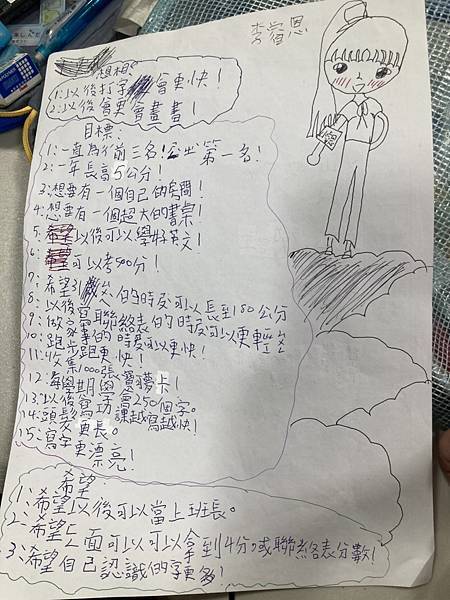 李宥恩
想相:
1:以後打字會更快!
2:以後會更會畫畫!
目標:
1:一直為前三名!
第一名!
2:一年長高5公分!
3:想要有一個自己的房間!
4:想要有一個超大的書桌!
5:以後可以學好英文!
6:可以考500分!
7:希望 的時候可以長到180公分
8:以後寫聯絡表的時候可以更輕
9:做家事的時候可以更快!
10:跑步跑更快!
11:收集1000張寶可夢卡!
12:每學期
13:以後寫功課越寫越快!
14:頭髮更長。
15:寫字更漂亮!
希望:
1:希望以後可以當上班長。
2:希望 面可以可以拿到4分。或聯絡表分數!
3:希望自己認識的字更多!